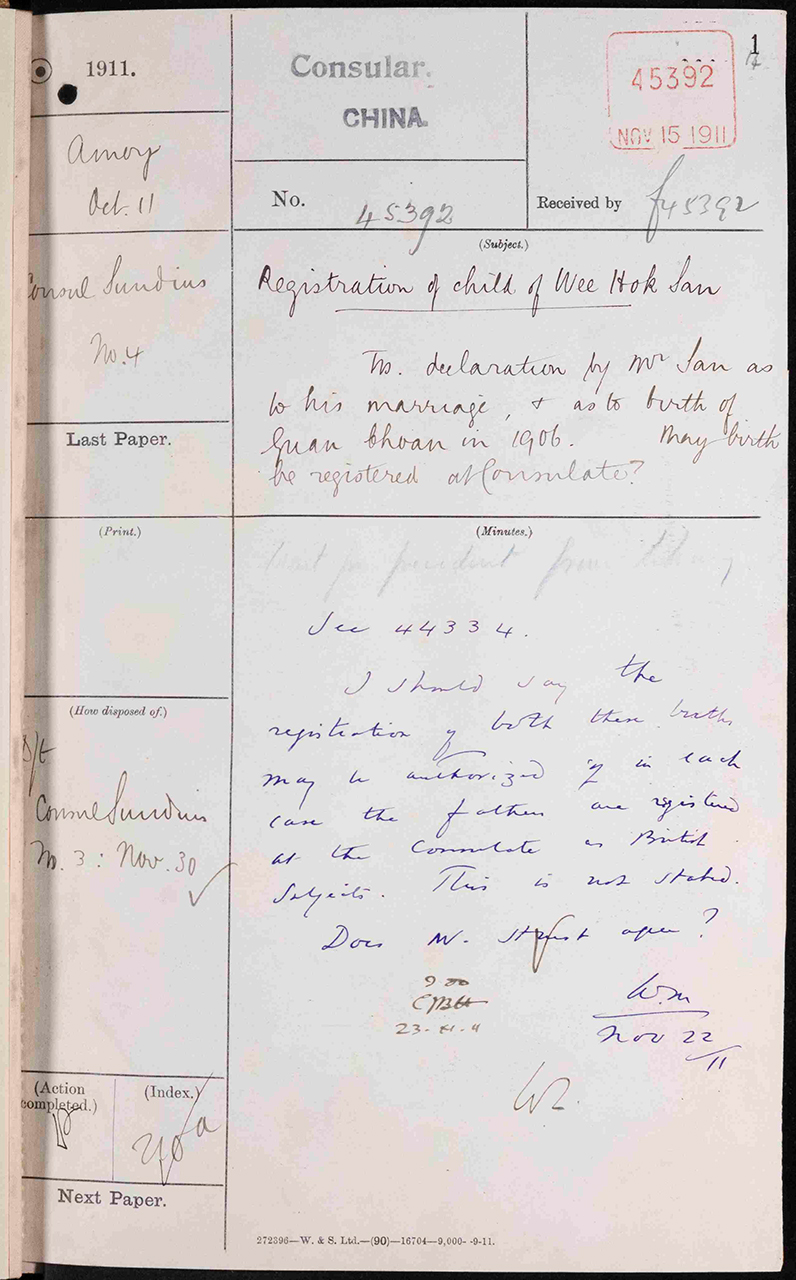 1911.
Consular.
CHINA.
45392
NOV 15 1911
1
Amoy
Oct. 11
No.
45392
Received by
f45392
Consul Sundius
No. 4
(Subject.)
Registration of child of Wee Hok San
Ts. declaration by Mr San as
to his marriage, & as to birth of
Guan Choan in 1906. May birth
be registered at Consulate?
Last Paper.
(Print.)
(Minutes.)
from Library
See 44334.
I should say the
registration of both these births
may be authorized if in each
case the fathers are registered
at the Consulate as British
Subjects. This is not stated.
Does Mr. agree?
W.M
Nov 22
/11
23.XI.11
(How disposed of.)
Dft
Consul Sundius
No. 3: Nov. 30
(Action
completed.)
(Index.)
Next Paper.
272396—W. & S. Ltd.—(90)—16704—9,000- -9-11.